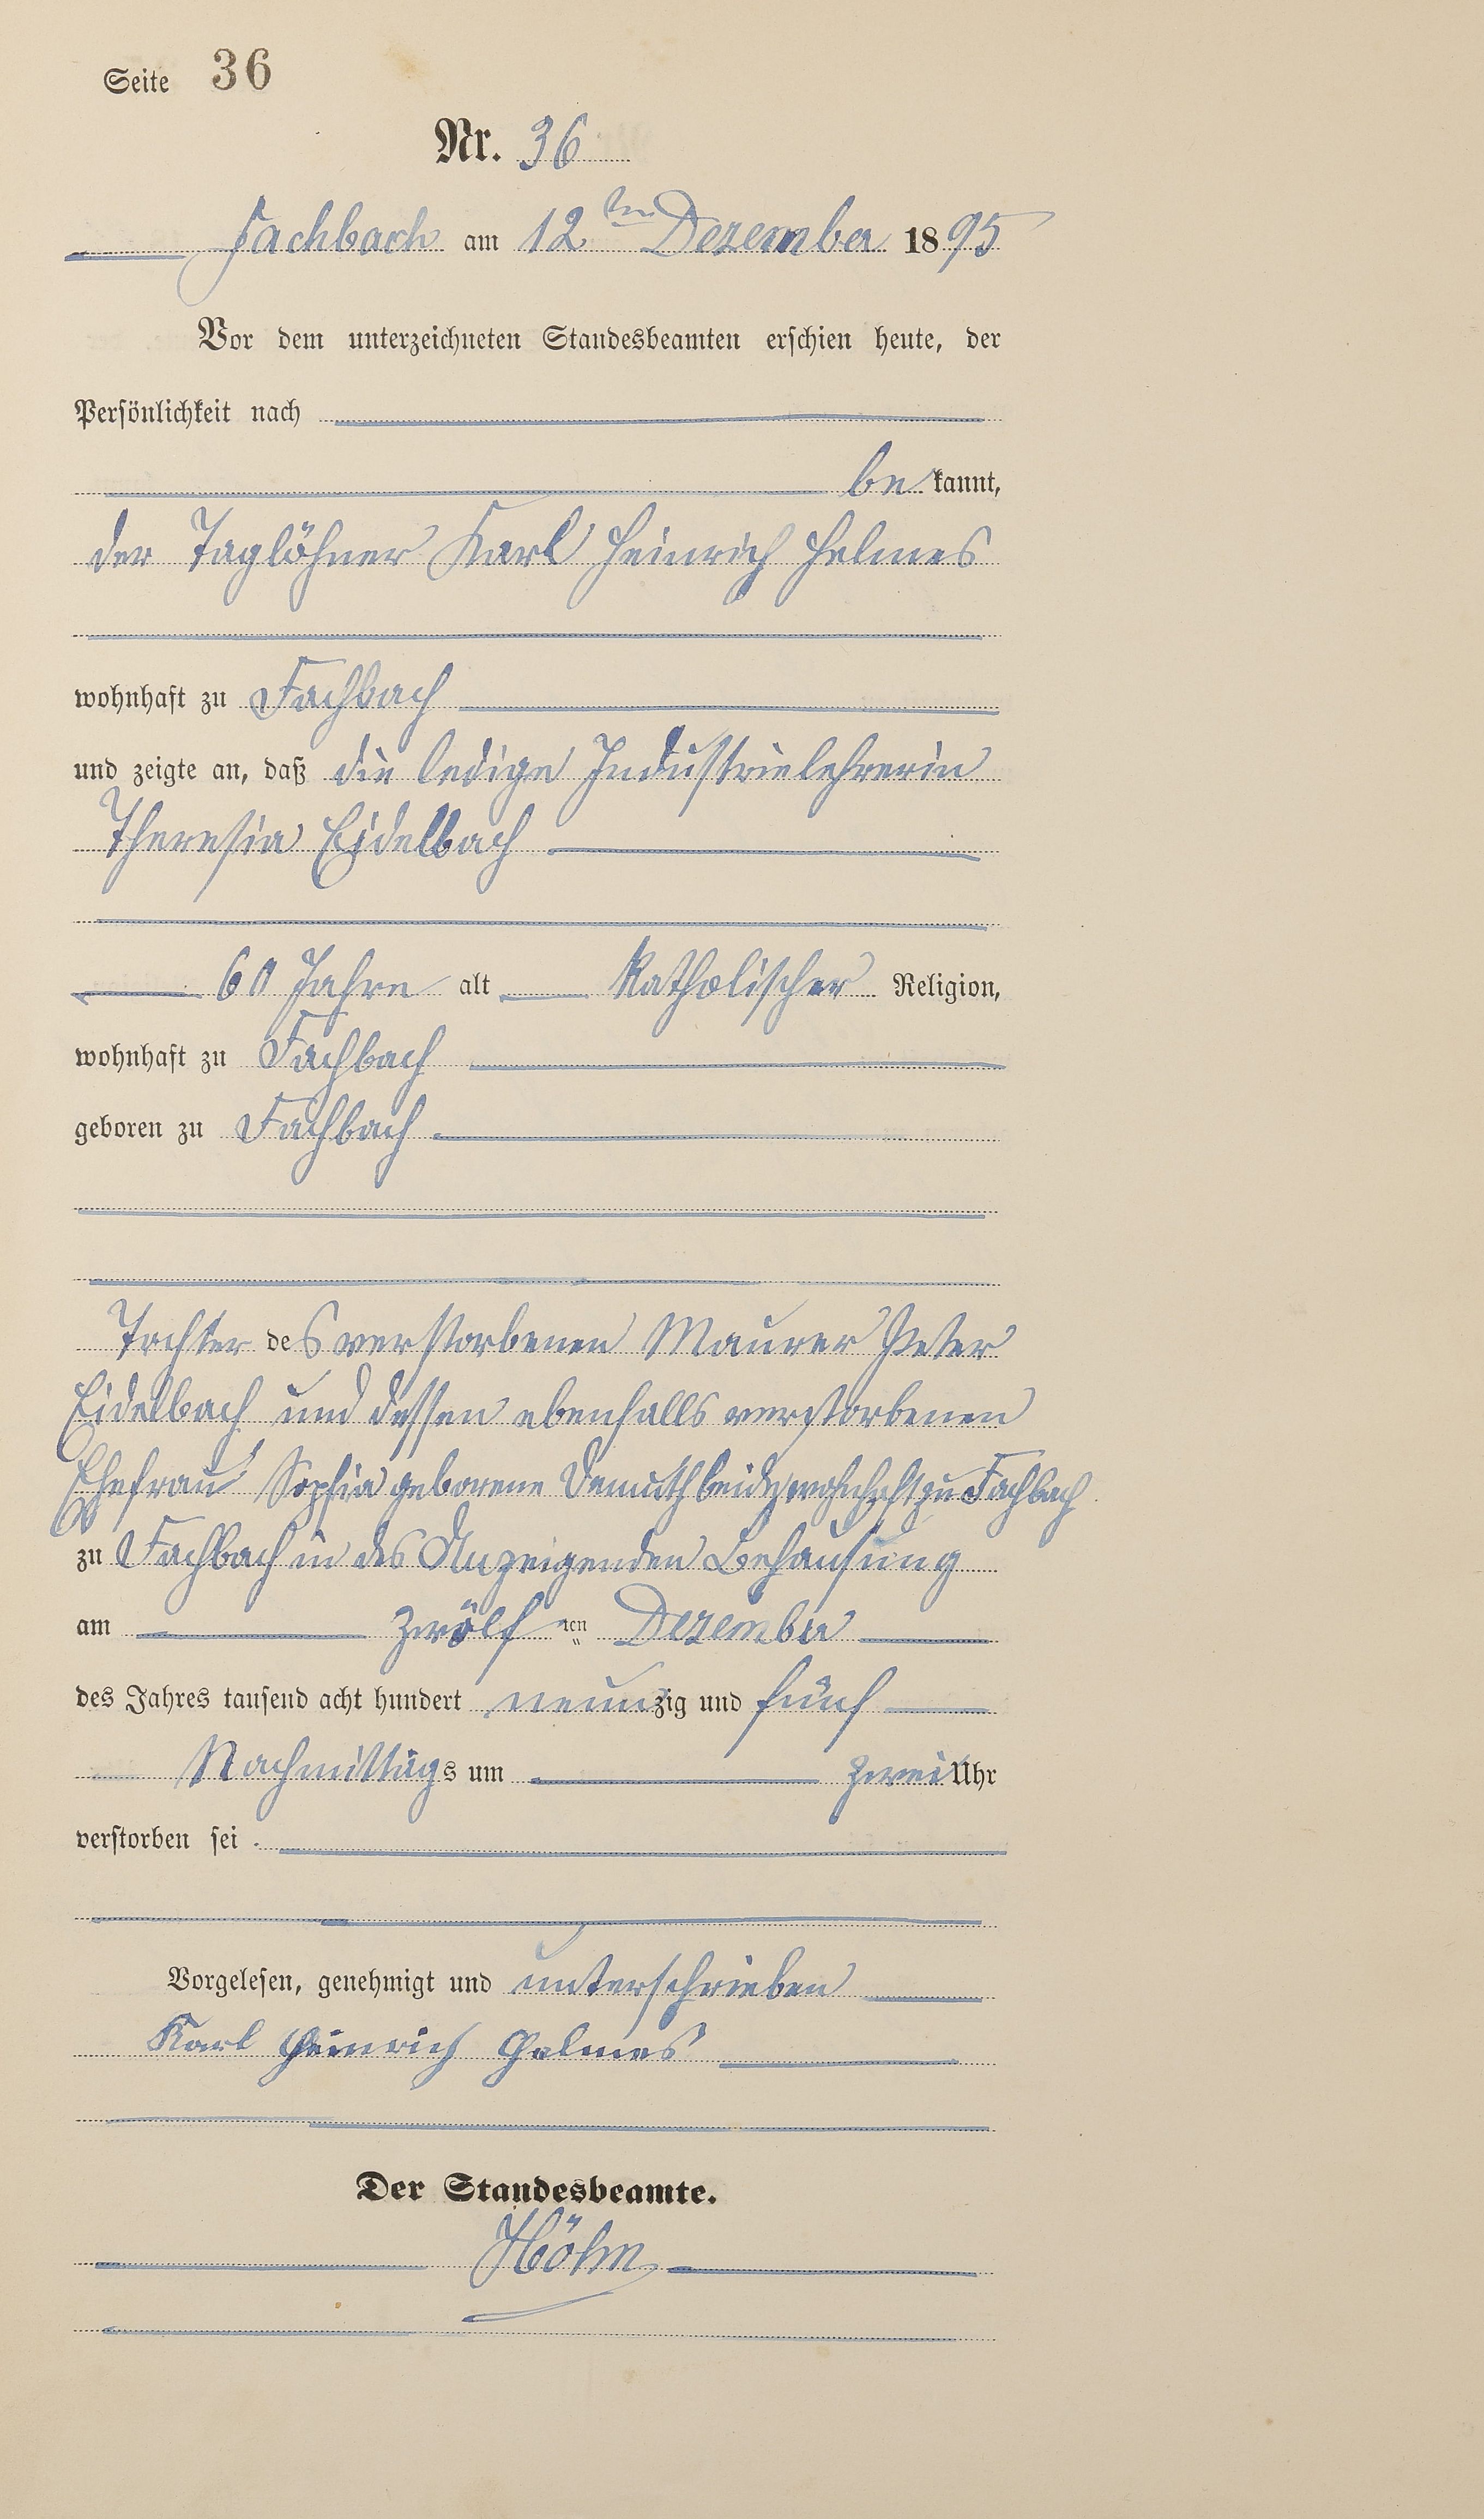 Seite 36
Nr. 36
Fachbach am 12ten Dezember 1895
Vor dem unterzeichneten Standesbeamten erschien heute, der
Persönlichkeit nach
bekannt,
der Taglöhner Karl Heinrich Helmes
wohnhaft zu Fachbach
und zeigte an, daß die ledige Industrielehrerin
Theresia Eidelbach
60 Jahre alt katholischer Religion,
wohnhaft zu Fachbach
geboren zu Fachbach
Tochter des verstorbenen Maurer Peter
Eidelbach und dessen ebenfalls verstorbenen
Ehefrau Sophia geborene Demuth beide wohnhaft zu Fachbach
zu Fachbach in des Anzeigenden Behausung
am zwölften Dezember
des Jahres tausend acht hundert neunzig und fünf
Nachmittags um zwei Uhr
verstorben sei.
Vorgelesen, genehmigt und unterschrieben
Karl Heinrich Helmes
Der Standesbeamte.
Höhn